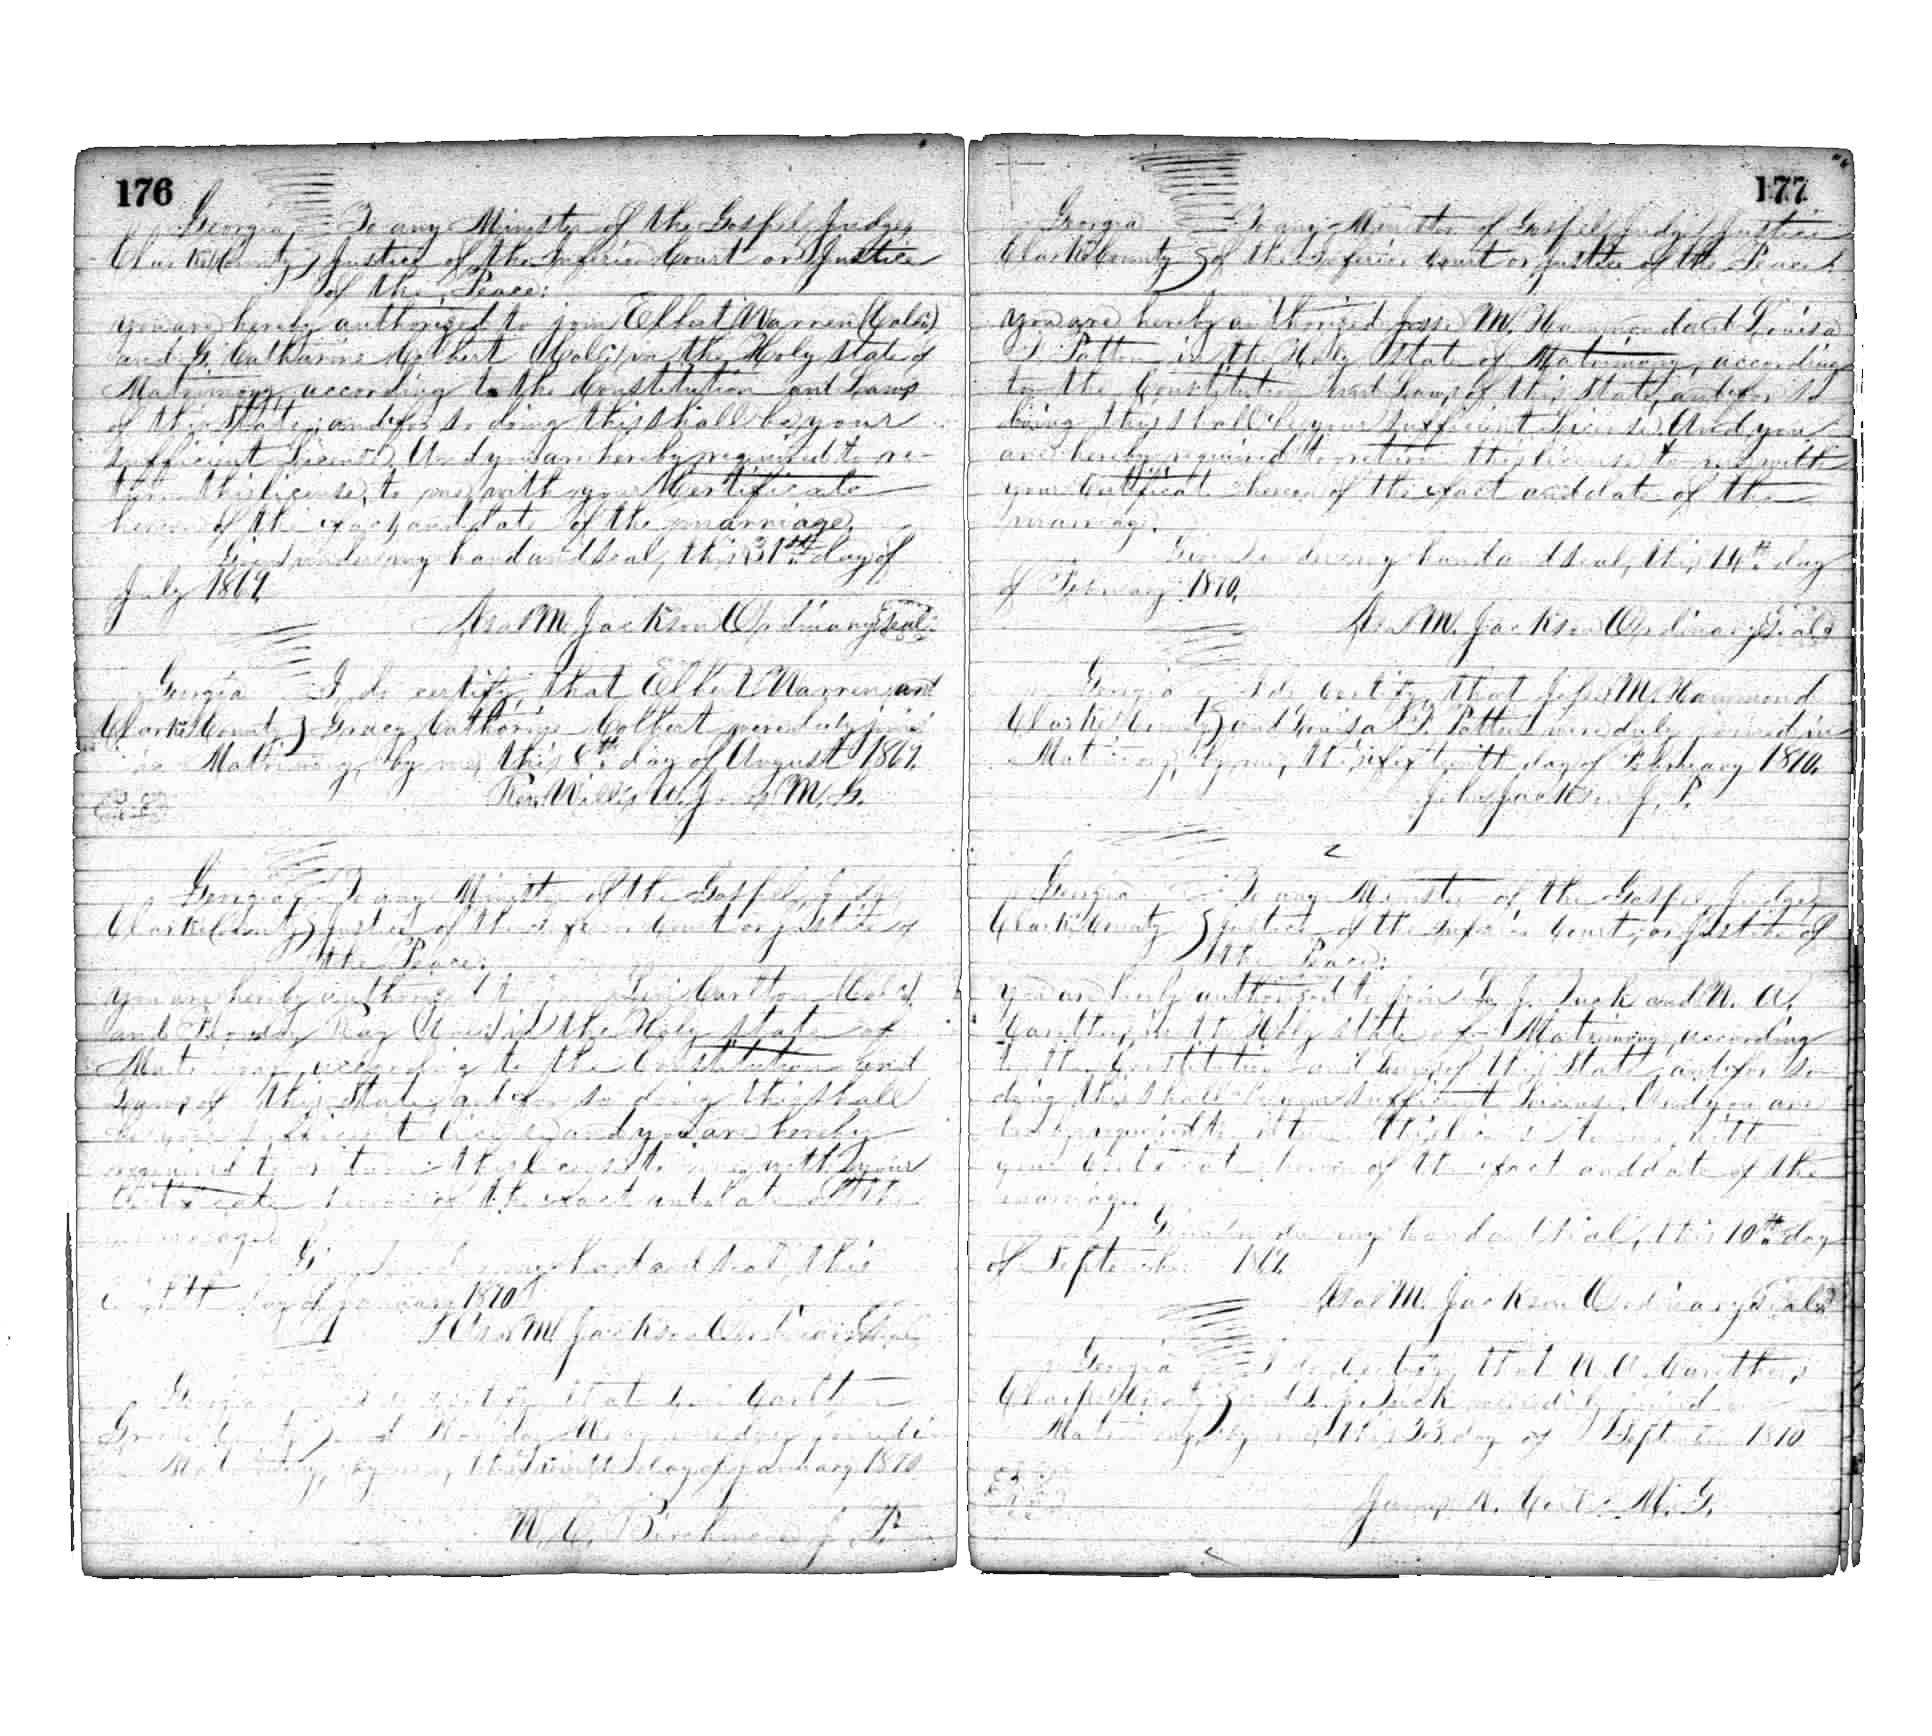 176
Georgia, To any Minister of the Gospel, Judge,
Clarke County } Justice of the Inferior Court or Justice
of the Peace:
you are hereby authorized to join Elbert Warren (Col'd)
and G. Catharine Colbert (Col'd) in the Holy state of
Matrimony, according to the Constitution and Laws
of this State, and for so doing this shall be your
sufficient License. And you are hereby required to re-
turn this license, to me with your Certificate
hereon of the fact, and date of the marriage.
Given under my hand and seal, this 31st day of
July 1869.
Asa M. Jackson Ordinary Seal
Georgia I, do certify, that Elbert Warren and
Clarke County } Gracy Catharine Colbert were duly joined
in Matrimony, by me, this 8th day of August 1869.
Rev. Willis M. G.
Georgia, To any Minister of the Gospel, Judge,
Clarke County } Justice of the Inferior Court or Justice of
the Peace:
you are hereby authorized to join Levi Carlton (Col'd)
and Ray in the Holy state of
Matrimony, according to the Constitution and
Laws of this State, and for so doing this shall
be your sufficient license, and you are hereby
required to return this License to me, with your
Certificate hereon of the fact and date of the
marriage.
Given under my hand and seal, this
eighth day of January 1870
Asa M. Jackson Ordinary Seal
Georgia I do certify that Levi Carlton
County } and were duly joined in
Matrimony, by me, this day of January 1870
J. P.
177
Georgia To any Minister of Gospel, Judge, Justice
Clarke County } of the Inferior Court or Justice of the Peace:
you are hereby authorized Jesse M. Hammond and Louisa
Patton in the Holy State of Matrimony, according
to the Constitution and Laws of this State, and for so
doing this shall be your sufficient License. And you
are hereby required to return this license to me with
your Certificate hereon of the fact and date of the
marriage.
Given under my hand and seal, this 14th day
of February 1870.
Asa M. Jackson Ordinary Seal
Georgia I do Certify, that Jesse M. Hammond
Clarke County } and Louisa Patton were duly joined in
Matrimony, by me, this day of February 1870.
John Jackson J. P.
Georgia To any Minister of the Gospel, Judge,
Clarke County } Justice of the Inferior Court, or Justice of
the Peace:
you are hereby authorized to join L. J. Tuck and N. A.
in the Holy state of Matrimony, according
to the Constitution and Laws of this State, and for so
doing this shall be your sufficient License. And you are
hereby required to return this license to me, with
your Certificate hereon of the fact and date of the
marriage.
Given under my hand and seal, this 10th day
of September 186
Asa M. Jackson Ordinary Seal
Georgia I do Certify, that N. A.
Clarke County } and L. J. Tuck were duly joined in
Matrimony by me, this 23 day of September 1870
M. G.